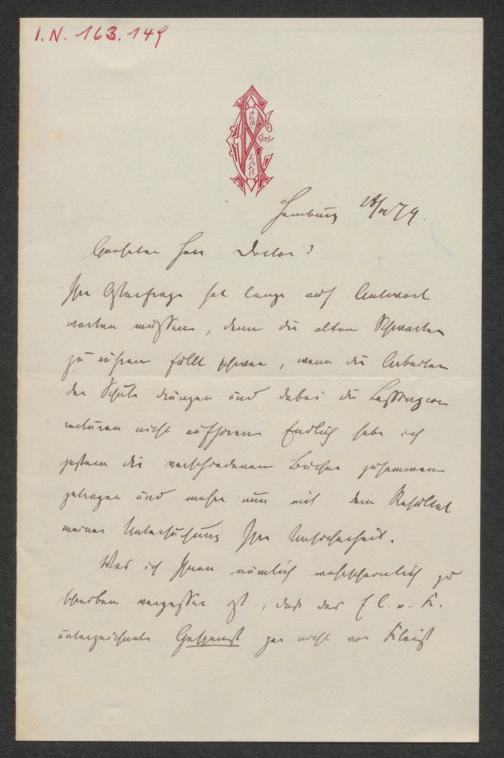 I.N. 163.149
Hamburg 26/4 79.
Geehrter Herr Doctor!
Ihre Osterfrage hat lange auf Antwort
warten müssen, denn die alten Schwarten
zu rühren fällt schwer, wenn die Arbeiten
der Schule drängen und dabei die Lessingcor
recturen nicht aufhören. Endlich habe ich
gestern die verschiedenen Bücher zusammen
getragen und mehre nun mit dem Resultat
meiner Untersuchung Ihre Unsicherheit.
Was ich Ihnen nämlich wahrscheinlich zu
schreiben vergessen ist, daß das E C. v. K.
unterzeichnete Gespenst gar nicht von Kleist